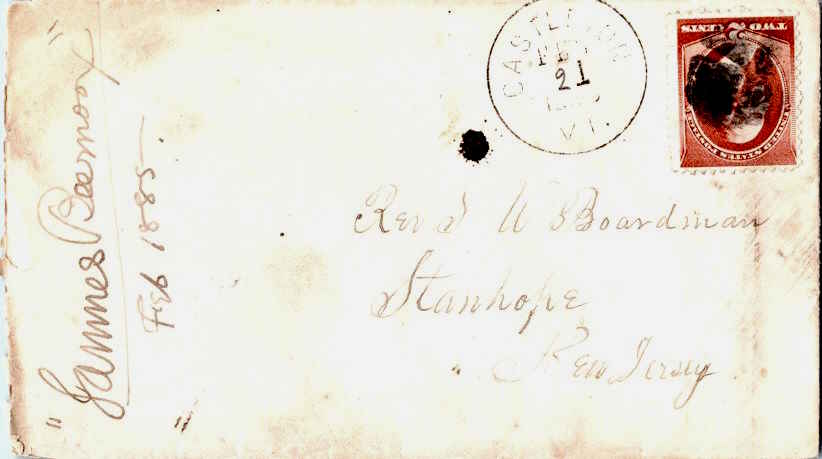 CASTLETON
FEB
21
VT.
TWO CENTS
2
UNITED STATES POSTAGE
Rev S W Boardman
Stanhope
New Jersey
"James
Feb 1885
"